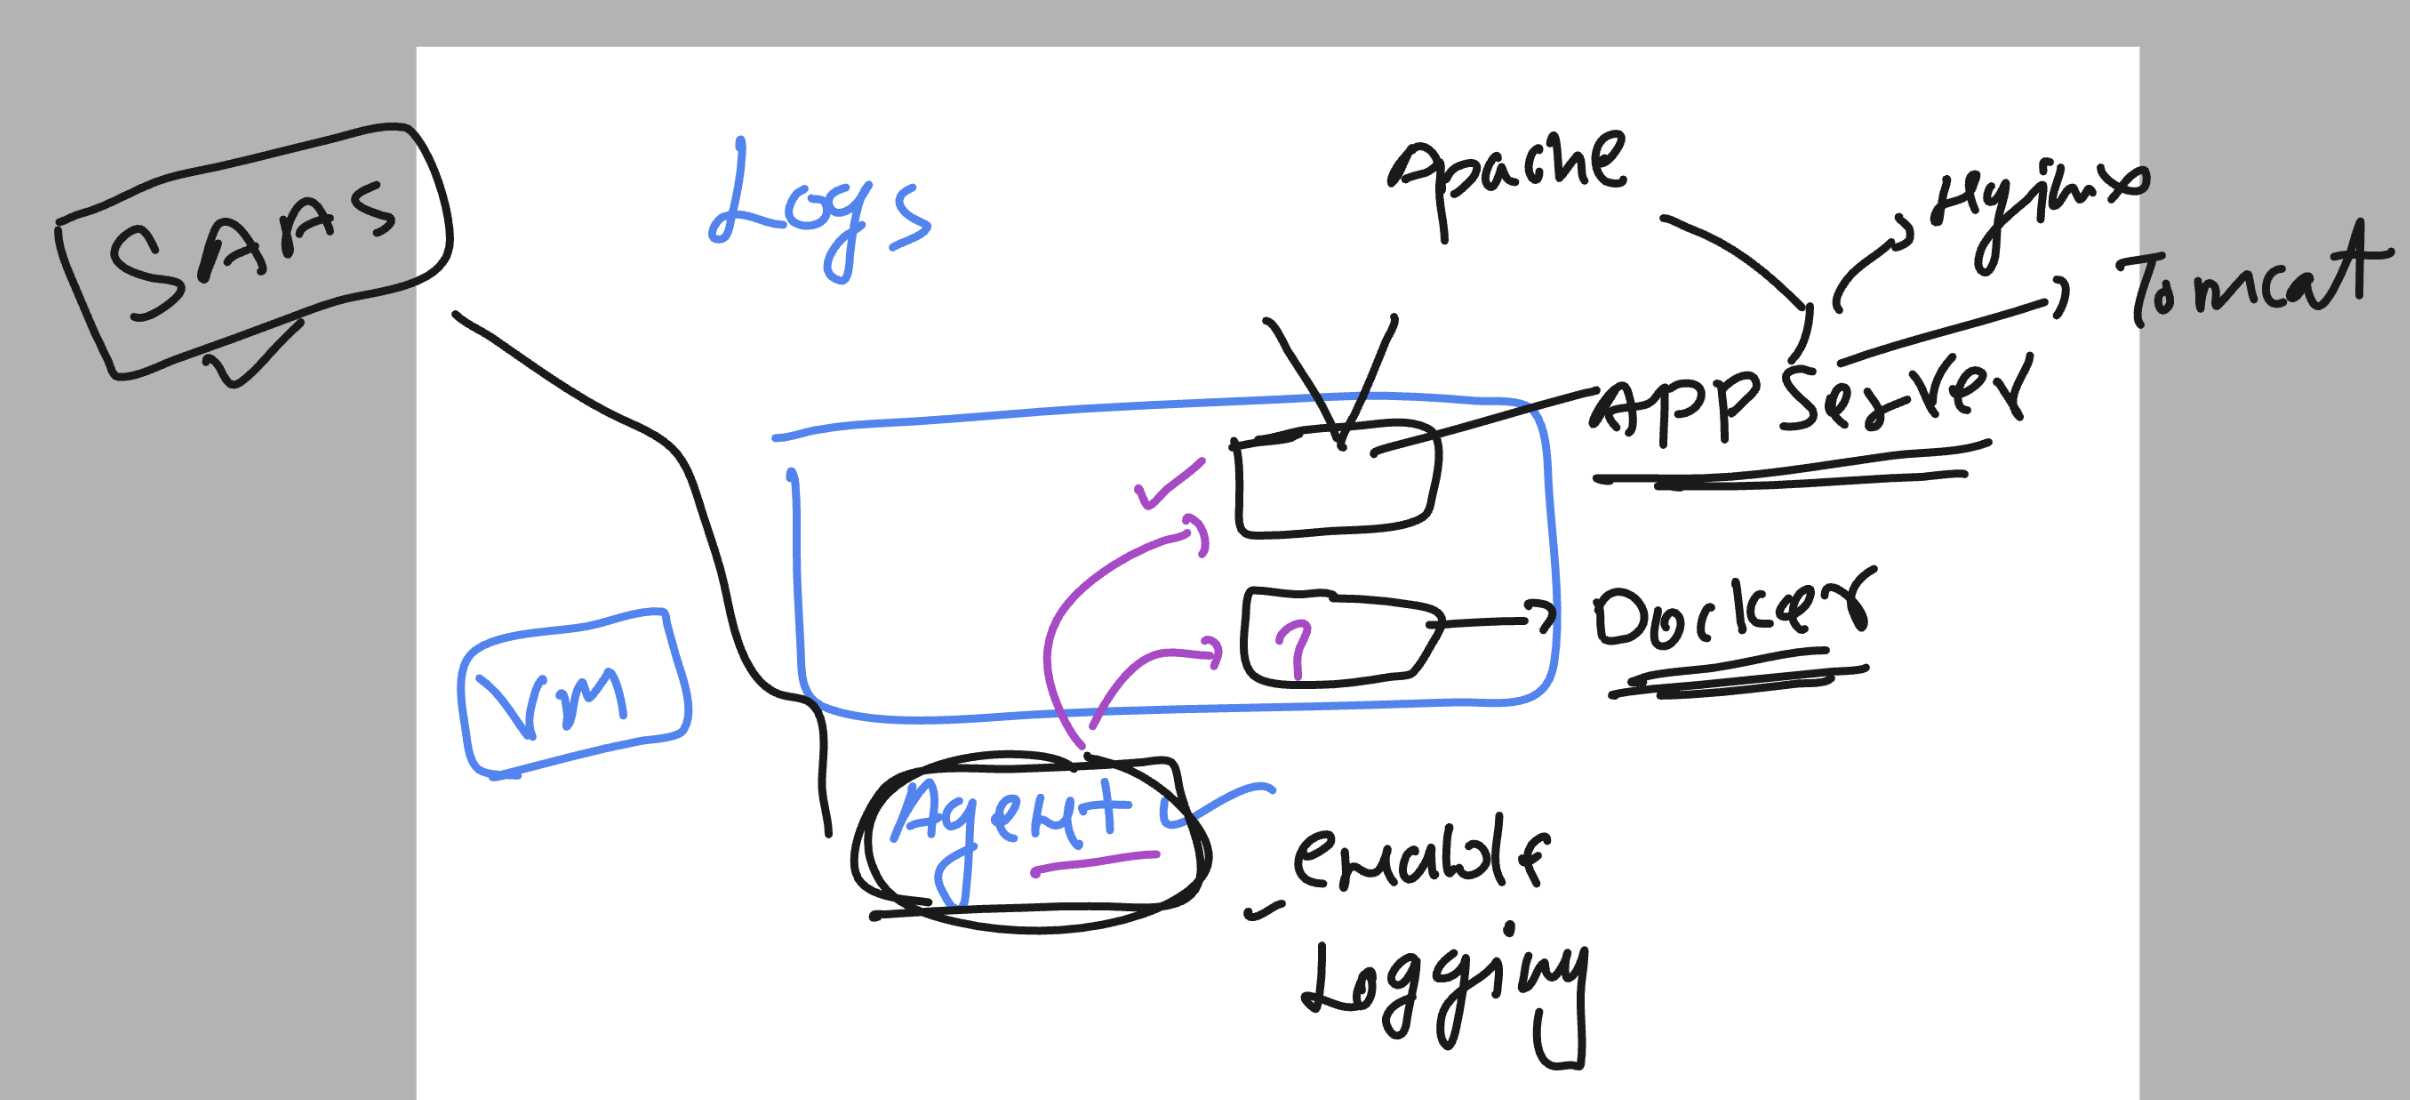 SAAS
Logs
Apache
Nginx
Tomcat
APP Server
?
Docker
VM
Agent
enable
Logging